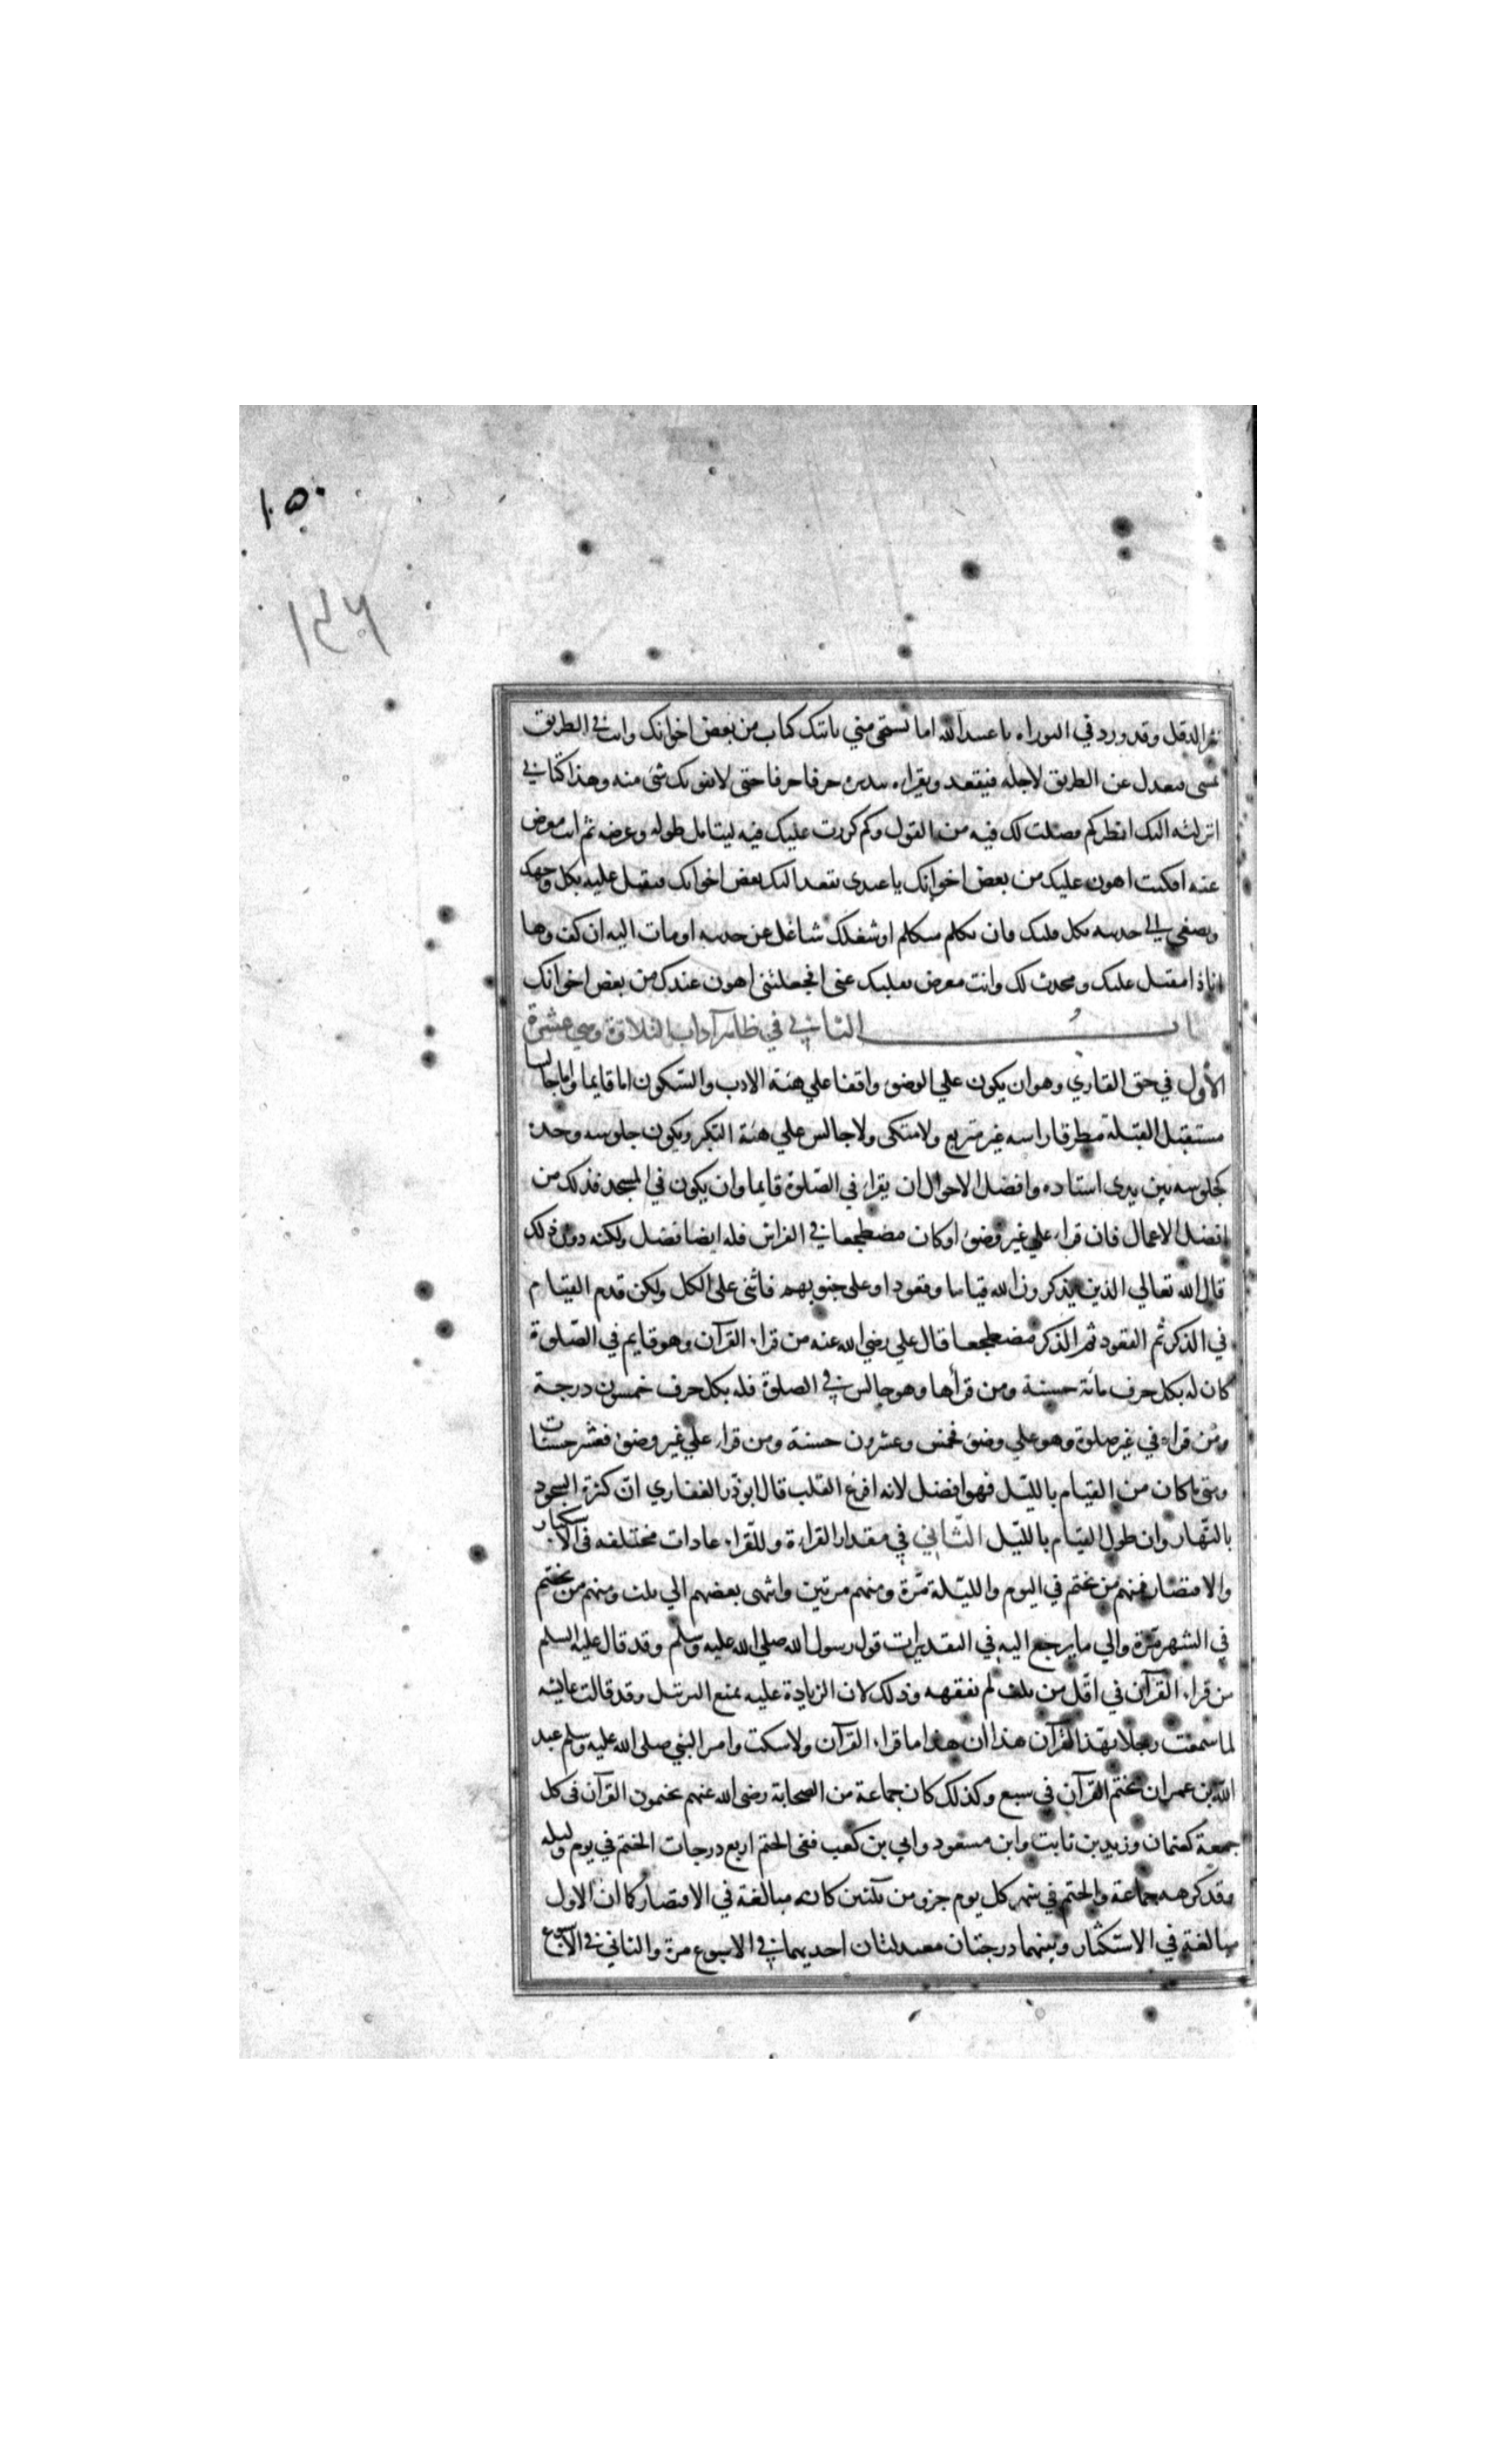 ١٥٠
١٤٦
نثر الدقل وقد ورد في التوراة يا عبد الله اما تستحى مني ياتيك كتاب من بعض اخوانك وانت في الطريق
تمشى فتعدل عن الطريق لاجله فيقعد ويقراءه تتدبره حرفا حرفا حتى لا يفوتك شئ منه وهذا كتابي
انزلته اليك انظر كم فصلت لك فيه من القول وكم كررت عليك فيه ليتامل طوله وعرضه ثم انت معرض
عنه افكنت اهون عليك من بعض اخوانك يا عبدى يقعد اليك بعض اخوانك فتقبل عليه بكل وجهك
وتصغى الى حديثه بكل قلبك فان تكلم متكلم او شغلك شاغل عن حديثه اومات اليه ان كف وها
انا ذا مقبل عليك ومحدث لك وانت معرض بقلبك عنى افجعلتنى اهون عندك من بعض اخوانك
باب الثاني في ظاهر آداب التلاوة وهي عشرة
الأول في حق القاري وهو ان يكون علي الوضوء واقفا علي هيئة الادب والسكون اما قايما واما جالسا
مستقبل القبلة مطرقا راسه غير متربع ولا متكى ولا جالس علي هيئة التكبر ويكون جلوسه وحده
كجلوسه بين يدى استاده وافضل الاحوال ان يقراء في الصلوة قايما وان يكون في المسجد فذلك من
افضل الاعمال فان قراء علي غير وضوء او كان مضطجعا في الفراش فله ايضا فضل ولكنه دون ذلك
قال الله تعالي الذين يذكرون الله قياما وقعودا وعلى جنوبهم فاثنى على الكل ولكن قدم القيام
في الذكر ثم القعود ثم الذكر مضطجعا قال علي رضي الله عنه من قراء القرآن وهو قايم في الصلوة
كان له بكل حرف مائة حسنة ومن قرأها وهو جالس في الصلوة فله بكل حرف خمسون درجة
ومن قراه في غير صلوة وهو علي وضوء فخمس وعشرون حسنة ومن قراء علي غير وضوء فعشر حسنات
ومتي ما كان من القيام بالليل فهو افضل لانه افرغ القلب قال ابو ذر الغفاري ان كثرة السجود
بالنهار وان طول القيام بالليل الثاني في مقدار القراءة وللقراء عادات مختلفه فى الاستكثار
والاقتصار فمنهم من يختم في اليوم والليلة مرة ومنهم مرتين وانتهى بعضهم الي ثلث ومنهم من يختم
في الشهر مرة والي ما يرجع اليه في التقديرات قول رسول الله صلي الله عليه وسلم وقد قال عليه السلم
من قراء القرآن في اقل من ثلث لم يفقهه وذلك لان الزيادة عليه يمنع الترتيل وقد قالت عايشه
لما سمعت رجلا يهذ القرآن هذا ان هذا ما قراء القرآن ولا سكت وامر النبي صلى الله عليه وسلم عبد
الله بن عمر ان يختم القرآن في سبع وكذلك كان جماعة من الصحابة رضى الله عنهم يختمون القرآن فى كل
جمعة كعثمان وزيد بن ثابت وابن مسعود وابي بن كعب ففى الختم اربع درجات الختم في يوم وليله
وقد كرهه جماعة والختم في شهر كل يوم جزو من ثلثين كانه مبالغة في الاقتصار كما ان الاول
مبالغة في الاستكثار وبينهما درجتان معتدلتان احديهما في الاسبوع مرة والثاني في الاسبوع